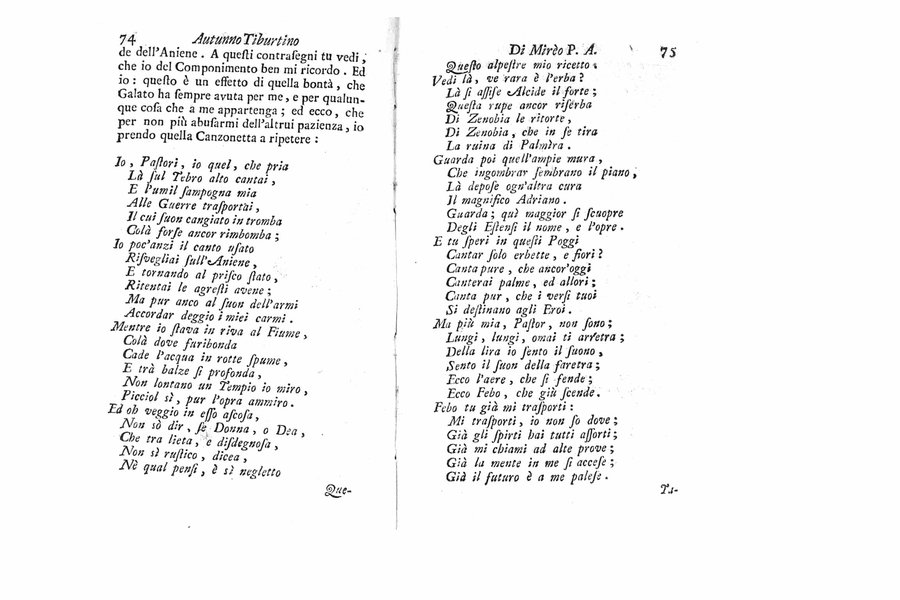 74 Autunno Tiburtino
de dell'Aniene . A queſti contraſegni tu vedi ,
che io del Componimento ben mi ricordo . Ed
io : queſto è un effetto di quella bontà , che
Galato ha ſempre avuta per me , e per qualun-
que coſa che a me appartenga ; ed ecco , che
per non più abuſarmi dell'altrui pazienza , io
prendo quella Canzonetta a ripetere :
Io , Paſtori , io quel , che pria
Là ſul Tebro alto cantai ,
E l'umil ſampogna mia
Alle Guerre traſportai ,
Il cui ſuon cangiato in tromba
Colà forſe ancor rimbomba ;
Io poc'anzi il canto uſato
Riſvegliai ſull'Aniene ,
E tornando al priſco ſtato ,
Ritentai le agreſti avene ;
Ma pur anco al ſuon dell'armi
Accordar deggio i miei carmi .
Mentre io ſtava in riva al Fiume ,
Colà dove furibonda
Cade l'acqua in rotte ſpume ,
E trà balze ſi profonda ,
Non lontano un Tempio io miro ,
Picciol sì , pur l'opra ammiro .
Ed oh veggio in eſſo aſcoſa ,
Non sò dir , ſe Donna , o Dea ,
Che tra lieta , e diſdegnoſa ,
Non sì ruſtico , dicea ,
Nè qual penſi , è sì negletto
Que-
Di Mirèo P. A. 75
Queſto alpeſtre mio ricetto .
Vedi là , ve rara è l'erba ?
Là ſi aſſiſe Alcide il forte ;
Queſta rupe ancor riſerba
Di Zenobia le ritorte ,
Di Zenobia , che in ſe tira
La ruina di Palmìra .
Guarda poi quell'ampie mura ,
Che ingombrar ſembrano il piano ,
Là depoſe ogn'altra cura
Il magnifico Adriano .
Guarda ; quì maggior ſi ſcuopre
Degli Eſtenſi il nome , e l'opre .
E tu ſperi in queſti Poggi
Cantar ſolo erbette , e fiori ?
Canta pure , che ancor'oggi
Canterai palme , ed allori ;
Canta pur , che i verſi tuoi
Si deſtinano agli Eroi .
Ma più mia , Paſtor , non ſono ;
Lungi , lungi , omai ti arretra ;
Della lira io ſento il ſuono ,
Sento il ſuon della faretra ;
Ecco l'aere , che ſi fende ;
Ecco Febo , che giù ſcende .
Febo tu già mi traſporti :
Mi traſporti , io non ſo dove ;
Già gli ſpirti hai tutti aſſorti ;
Già mi chiami ad alte prove ;
Già la mente in me ſi acceſe ;
Già il futuro è a me paleſe .
Ta-